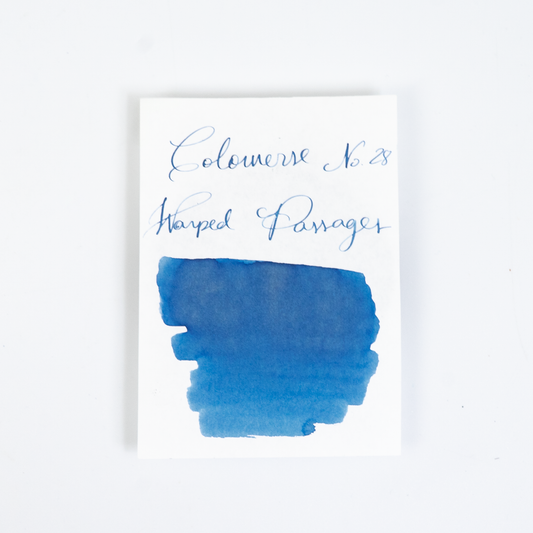 Colorverse No. 28
Warped Passages